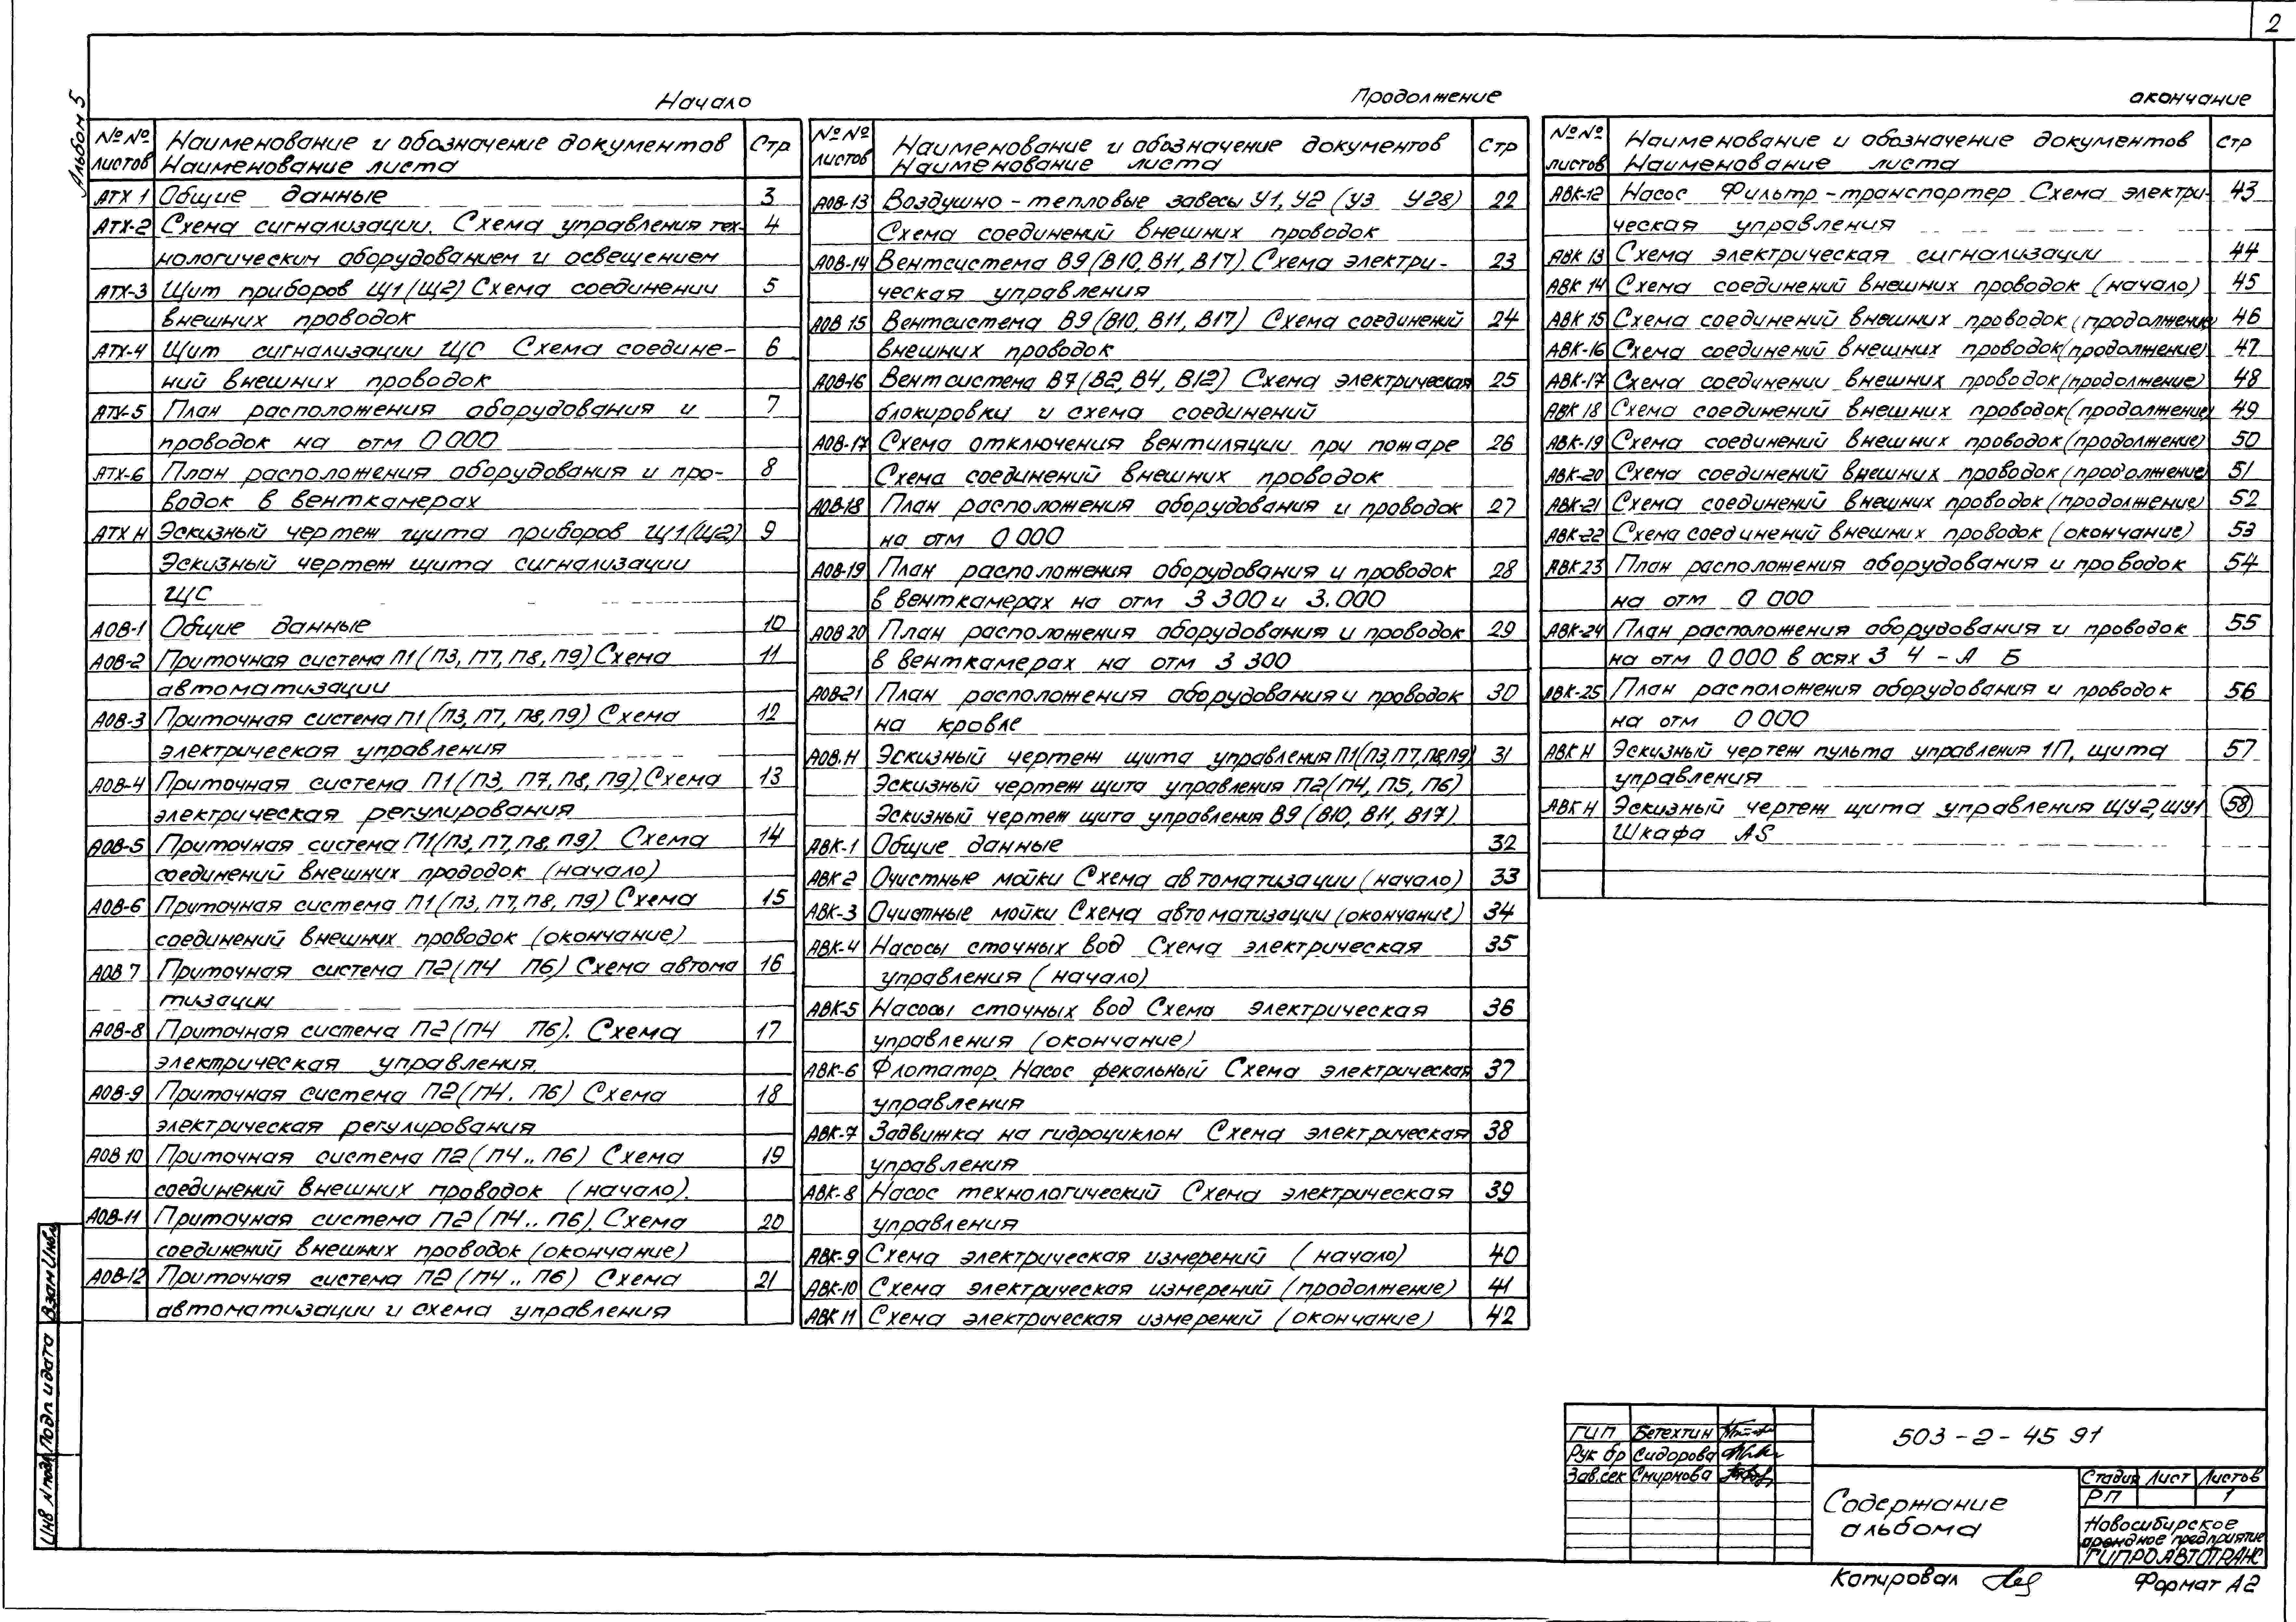 2
Альбом 5
Начало
№№ листов Наименование и обозначение документов Наименование листа Стр
АТХ 1 Общие данные 3
АТХ-2 Схема сигнализации. Схема управления тех- 4
нологическим оборудованием и освещением
АТХ-3 Щит приборов Щ1 (Щ2) Схема соединении 5
внешних проводок
АТХ-4 Щит сигнализации ЩС Схема соедине- 6
ний внешних проводок
АТХ-5 План расположения оборудования и 7
проводок на отм 0 000
АТХ-6 План расположения оборудования и про- 8
водок в венткамерах
АТХ Н Эскизный чертеж щита приборов Щ1(Щ2) 9
Эскизный чертеж щита сигнализации
ЩС
АОВ-1 Общие данные 10
АОВ-2 Приточная система П1 (П3, П7, П8, П9) Схема 11
автоматизации
АОВ-3 Приточная система П1 (П3, П7, П8, П9) Схема 12
электрическая управления
АОВ-4 Приточная система П1 (П3, П7, П8, П9) Схема 13
электрическая регулирования
АОВ-5 Приточная система П1(П3, П7, П8, П9). Схема 14
соединений внешних прододок (начало)
АОВ-6 Приточная система П1 (П3, П7, П8, П9) Схема 15
соединений внешних проводок (окончание)
АОВ 7 Приточная система П2 (П4 П6) Схема автома 16
тизации
АОВ-8 Приточная система П2 (П4 П6). Схема 17
электрическая управления.
АОВ-9 Приточная система П2 (П4. П6) Схема 18
электрическая регулирования
АОВ 10 Приточная система П2 (П4.. П6) Схема 19
соединений внешних проводок (начало).
АОВ-11 Приточная система П2 (П4.. П6). Схема 20
соединений внешних проводок (окончание)
АОВ-12 Приточная система П2 (П4.. П6) Схема 21
автоматизации и схема управления
Продолжение
№№ листов Наименование и обозначение документов Наименование листа Стр
АОВ-13 Воздушно - тепловые завесы У1, У2 (У3 У28) 22
Схема соединений внешних проводок
АОВ-14 Вентсистема В9 (В10, В11, В17) Схема электри- 23
ческая управления
АОВ 15 Вентсистема В9 (В10, В11, В17) Схема соединений 24
внешних проводок
АОВ-16 Вентсистема В7 (В2, В4, В12) Схема электрическая 25
блокировки и схема соединений
АОВ-17 Схема отключения вентиляции при пожаре 26
Схема соединений внешних проводок
АОВ-18 План расположения оборудования и проводок 27
на отм 0 000
АОВ-19 План расположения оборудования и проводок 28
в венткамерах на отм 3 300 и 3.000
АОВ 20 План расположения оборудования и проводок 29
в венткамерах на отм 3 300
АОВ-21 План расположения оборудования и проводок 30
на кровле
АОВ.Н Эскизный чертеж щита управления П1(П3, П7, П8, П9) 31
Эскизный чертеж щита управления П2(П4, П5, П6)
Эскизный чертеж щита управления В9 (В10, В11, В17)
АВК-1 Общие данные 32
АВК 2 Очистные мойки Схема автоматизации (начало) 33
АВК-3 Очистные мойки Схема автоматизации (окончание) 34
АВК-4 Насосы сточных вод Схема электрическая 35
управления (начало)
АВК-5 Насосы сточных вод Схема электрическая 36
управления (окончание)
АВК-6 Флотатор. Насос фекальный Схема электрическая 37
управления
АВК-7 Задвижка на гидроциклон Схема электрическая 38
управления
АВК-8 Насос технологический Схема электрическая 39
управления
АВК-9 Схема электрическая измерений (начало) 40
АВК-10 Схема электрическая измерений (продолжение) 41
АВК 11 Схема электрическая измерений (окончание) 42
окончание
№№ листов Наименование и обозначение документов Наименование листа Стр
АВК-12 Насос Фильтр - транспортер Схема электри- 43
ческая управления
АВК 13 Схема электрическая сигнализации 44
АВК 14 Схема соединений внешних проводок (начало) 45
АВК 15 Схема соединений внешних проводок (продолжение) 46
АВК-16 Схема соединений внешних проводок (продолжение) 47
АВК-17 Схема соединении внешних проводок (продолжение) 48
АВК 18 Схема соединений внешних проводок (продолжение) 49
АВК-19 Схема соединений внешних проводок (продолжение) 50
АВК-20 Схема соединений внешних проводок (продолжение) 51
АВК-21 Схема соединений внешних проводок (продолжение) 52
АВК-22 Схема соединений внешних проводок (окончание) 53
АВК 23 План расположения оборудования и проводок 54
на отм 0 000
АВК-24 План расположения оборудования и проводок 55
на отм 0 000 в осях 3 4 - А Б
АВК-25 План расположения оборудования и проводок 56
на отм 0 000
АВК Н Эскизный чертеж пульта управления 1П, щита 57
управления
АВК Н Эскизный чертеж щита управления ЩУ2, ЩУ1 58
Шкафа А5
ГИП Бетехтин
Рук бр Сидорова
Зав.сек Смирнова
503 - 2 - 45 91
Содержание альбома
Стадия Лист Листов
РП 1
Новосибирское
арендное предприятие
ГИПРОАВТОТРАНС
Копировал
Формат А2
Инв N подл Подп и дата Взам Инв.